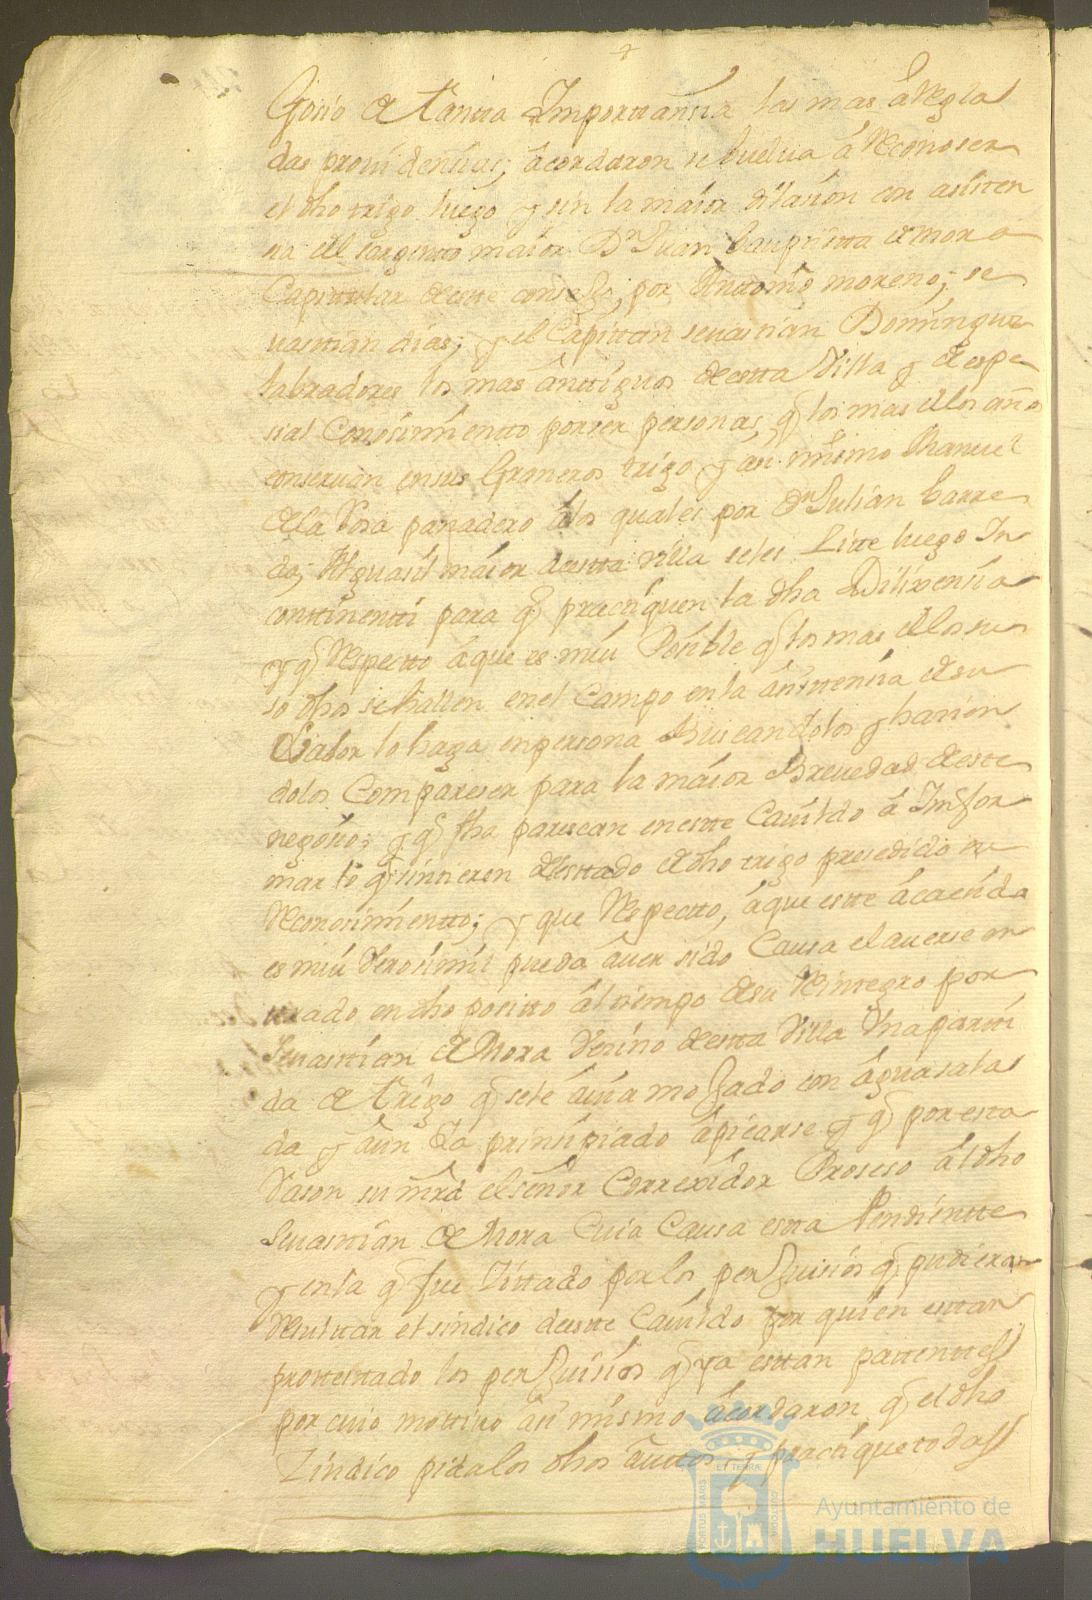 gosio de tanta Importansia las mas arregla
das providensias; acordaron se buelva a Reconoser
el dho trigo luego y sin la maior dilasion con asisten
sia del sargento maior Dn Juan Bauptista de mora
Capittular deste consejo, por Antonio moreno; se
vastian dias; y el Capittan sevastian Domingues
labradores los mas antiguos de esta Villa y de espe
sial Conosimientto por ser personas q los mas de los años
conservan en sus Graneros trigo y asi mismo Manuel
de la Rosa panadero a los quales por Dn Julian barre
da; Alguasil maior de esta villa se les Zitte luego In
conttinentti para q practiquen la dha Dilixensia
y q Respecto a que es mui Posible q los mas de los su
so dhos se hallen en el Campo en la asistensia de su
labor lo haga en persona Buscandolos y hasien
dolos Compareser para la maior Brevedad de este
negosio; y q fha parescan en este Cavildo a Infor
mar lo q sintieren del estado de dho trigo presedido su
Reconosimientto; y que Respecto, a que este acaesida
es mui Verosimil pueda aver sido Causa el averse en
trado en dho positto al tiempo de su Reintegro por
Sevastian de Mora Vesino de esta Villa Una partti
da de trigo q se le avia mojado con agua sala
da y aun Ya prinsipiado a picarse y q por esta
Rason su mrd el señor Correxidor Proseso al dho
Sevastian de Mora Cuia Causa esta Pendientte
y en la q fue Zittado por los perjuisios q pudieran
Resultar el sindico de este Cavildo por quien estan
prottestado los perjuisios q ya esttan pattenttes
por cuio mottivo asi mismo acordaron q el dho
Zindico pida los dhos auttos y practique todas
Ayuntamiento de
HUELVA
PORTUS MARIS
ET TERRAE
CUSTODIA